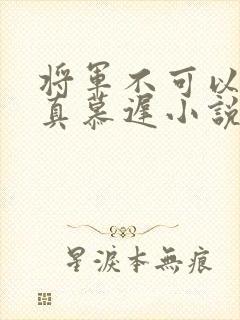 将軍不可以
真慕遲小説
星淚本無痕